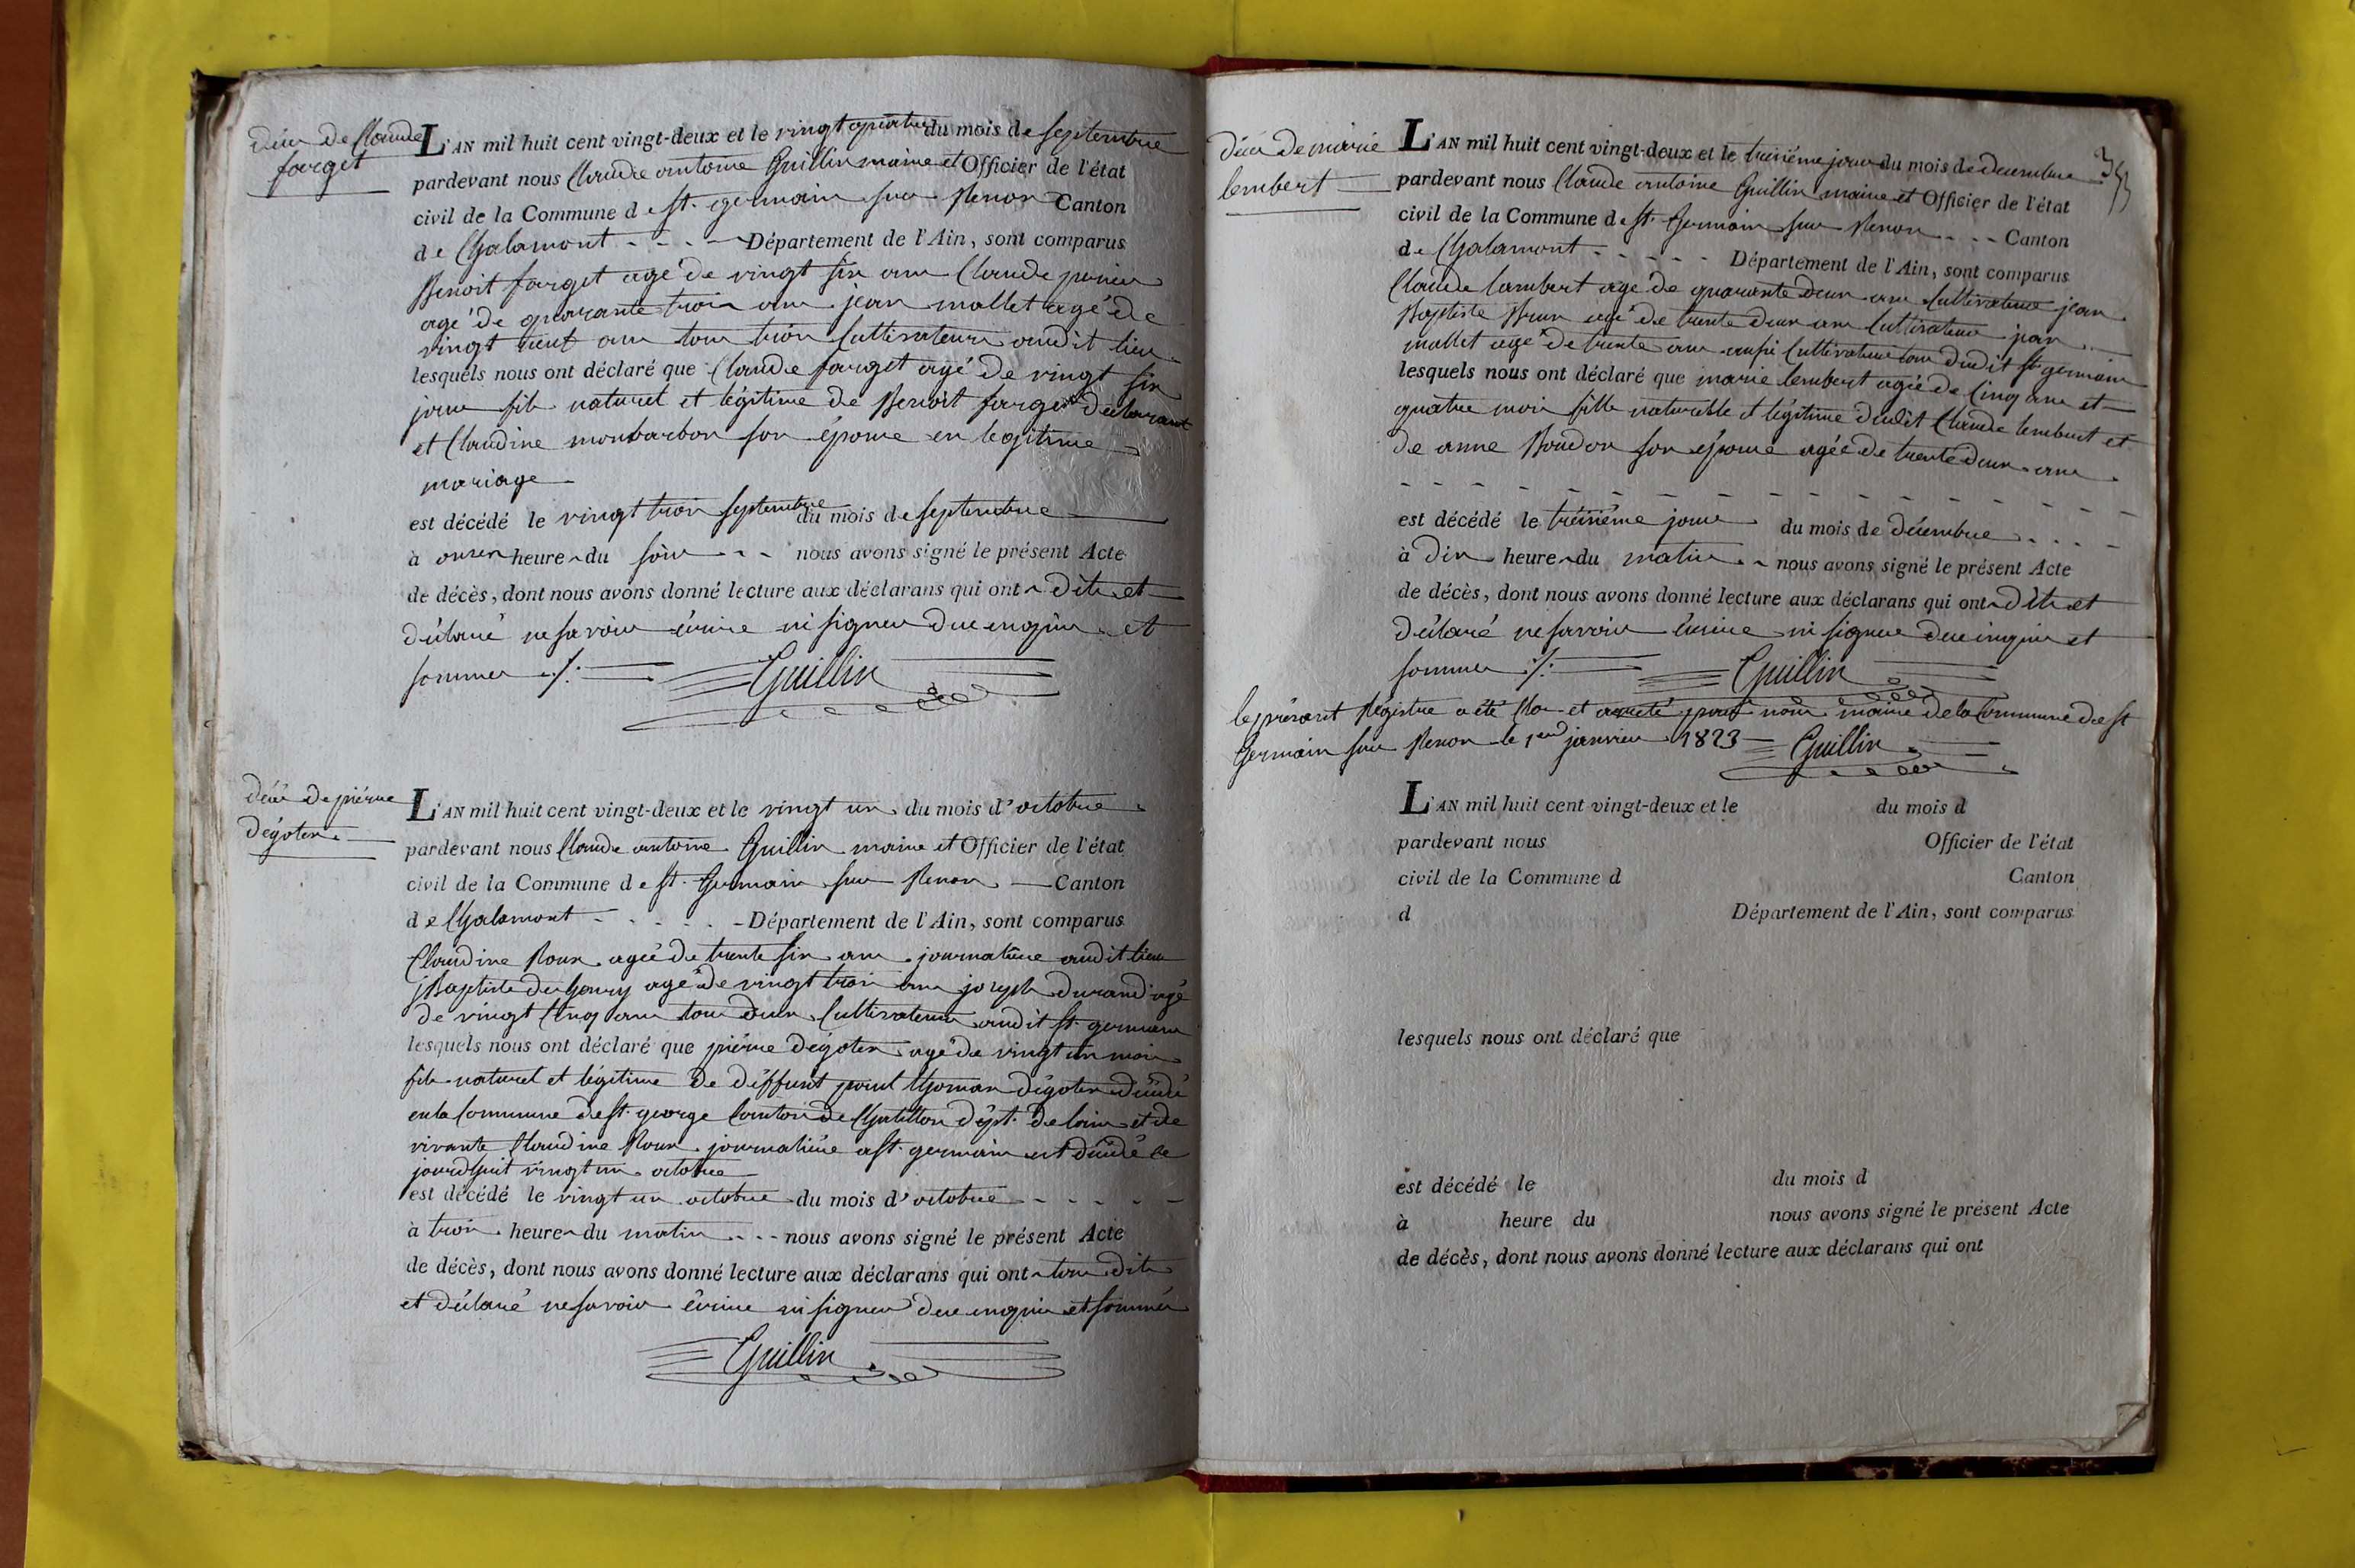 décès de Claude
forget
L'AN mil huit cent vingt-deux et le vingt quatre du mois de septembre
pardevant nous Claude antoine Guillin maire et Officier de l'état
civil de la Commune de st. germain sur Renon Canton
de Chalamont - - - - Département de l'Ain, sont comparus
Benoit forget agé de vingt six ans Claude
agé de quarante trois ans jean mallet agé de
vingt neuf ans tous trois Cultivateurs audit lieu
lesquels nous ont déclaré que Claude forget agé de vingt six
jours fils naturel et légitime de Benoit forget déclarant
et Claudine monbarbon son épouse en legitime
mariage
est décédé le vingt trois septembre du mois de septembre
à onze heures du soir - - nous avons signé le présent Acte
de décès, dont nous avons donné lecture aux déclarans qui ont dits et
déclaré ne savoir écrire ni signer due enquis et
sommés ./.
Guillin
décès de piérre
dégotex
L'AN mil huit cent vingt-deux et le vingt un du mois d'octobre
pardevant nous Claude antoine Guillin maire et Officier de l'état
civil de la Commune de st. Germain sur Renon Canton
de Chalamont - - - - - Département de l'Ain, sont comparus
Claudine Roux agée de trente six ans journalière audit lieu
jBaptiste agé de vingt trois ans joseph durand agé
de vingt Cinq ans tous deux Cultivateurs audit st. germain
lesquels nous ont déclaré que piérre dégotex agé de vingt un mois
fils naturel et légitime de déffunt Thomas dégotex décédé
en la Commune de st. george Canton de Chatillon dépt. de lain et de
vivante Claudine Roux journalière a st. germain est décédé ce
jourdhuit vingt un octobre
est décédé le vingt un octobre du mois d'octobre - - - - -
à trois heures du matin - - - nous avons signé le présent Acte
de décès, dont nous avons donné lecture aux déclarans qui ont tous dits
et déclaré ne savoir écrire ni signer due enquis et sommés
Guillin
décès de marie
lembert
L'AN mil huit cent vingt-deux et le treizième jour du mois de decembre
pardevant nous Claude antoine Guillin maire et Officier de l'état
civil de la Commune de st. Germain sur Renon - - - Canton
de Chalamont - - - - - Département de l'Ain, sont comparus
Claude lambert agé de quarante deux ans Cultivateur jean
Baptiste Brun agé de trente deux ans Cultivateur jean
mallet agé de trente ans aussi Cultivateur tous dudit st. germain
lesquels nous ont déclaré que marie lembert agée de Cinq ans et
quatre mois fille naturelle et légitime dudit Claude lembert et
de anne Boudon son épouse agée de trente deux ans
est décédé le treizième jour du mois de décembre - - - -
à dix heures du matin - - nous avons signé le présent Acte
de décès, dont nous avons donné lecture aux déclarans qui ont dits et
déclaré ne savoir écrire ni signer due enquis et
sommés ./.
Guillin
le présent Régistre a été Clos et arreté par nous maire de la Commune de st
Germain sur Renon le 1er janvier 1823
Guillin
L'AN mil huit cent vingt-deux et le du mois d
pardevant nous Officier de l'état
civil de la Commune d Canton
d Département de l'Ain, sont comparus
lesquels nous ont déclaré que
est décédé le du mois d
à heure du nous avons signé le présent Acte
de décès, dont nous avons donné lecture aux déclarans qui ont